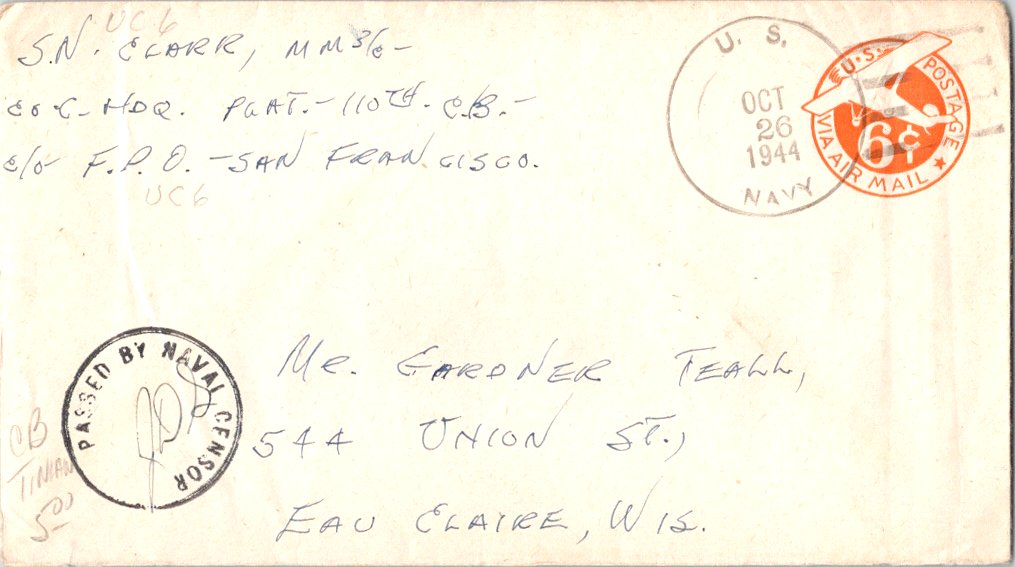 UC6
S.N. CLARK, MM 3/c -
CO C - HDQ. PLAT. - 110TH. C.B. -
c/o F.P.O. - SAN FRANCISCO.
UC6
U. S.
OCT
26
1944
NAVY
U.S. POSTAGE
6¢
VIA AIR MAIL
PASSED BY NAVAL CENSOR
Mr. GARDNER TEALL,
544 UNION ST.,
EAU CLAIRE, WIS.
CB
TINIAN
5.00